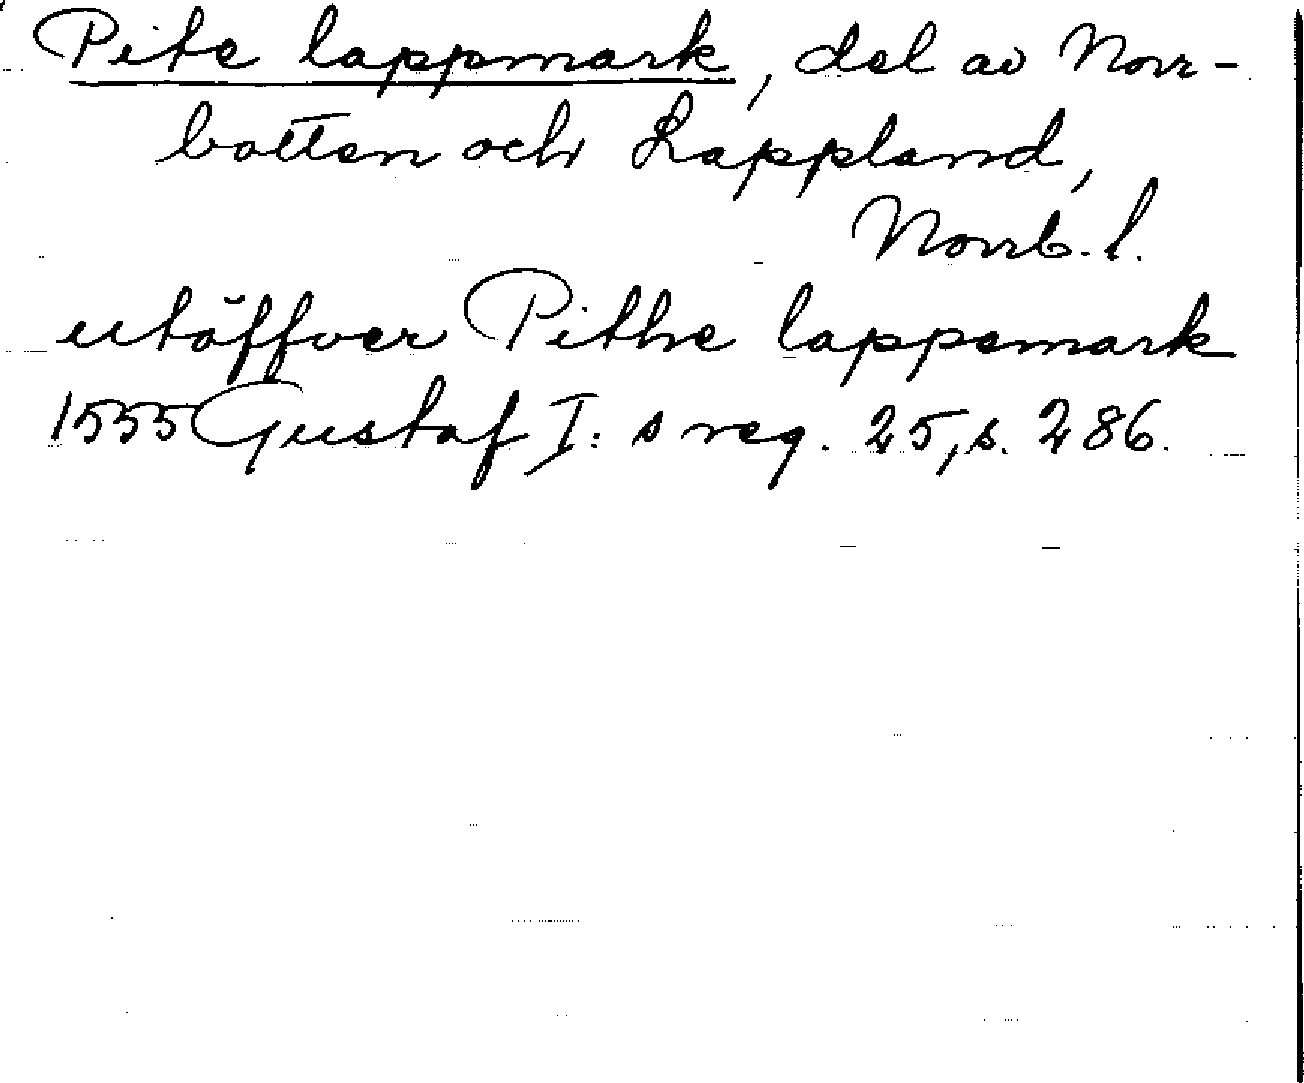 Pite lappmark, del av Norr-
botten och Lappland,
Norrb. l.
utöffver Pithe lappemark
1555 Gustaf I:s reg. 25, s. 286.